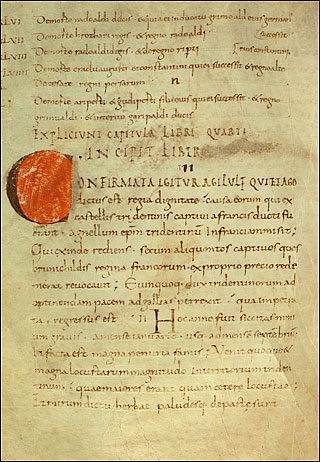 XLVI De morte radoaldi ducis · & quia et in ducatu grimoald eius germani
XLVII De morte hrothari regis · & regno radoaldi
De morte radoaldi regis · & de regno
De morte eracli augusti et constantini qui ei successit · & regno
De cesare regni persarum
De morte ariperti & gudiperti filii eius qui ei successit · & regno
grimualdi · & interitu garipaldi ducis
EXPLICIUNT CAPITULA LIBRI QUARTI
INCIPIT LIBER
II
CONFIRMATA IGITUR AGILULF QUI ET AGO
dictus est regia dignitate · causa eorum qui ex
castellis tridentinis captivi a francis ducti fu
erant · agnellum epm tridentinum in franciam misit ;
Qui exinde rediens · secum aliquantos captivos quos
brunichildis regina francorum ex proprio precio rede
merat revocavit ; Euin quoq; dux tridentinorum ad
optinendam pacem ad gallias perrexit · qua impetra
ta · regressus est · II Hoc anno fuit siccitas nimi
um gravis · a mense ianuario · usq; ad mense septembris
facta est magna penuria famis ; Venit quoq; &
magna locustarum magnitudo in territorium triden
tinum ; quae maiores erant quam cetere locustae ;
Et mirum dictu herbas paludesq; depasta sunt